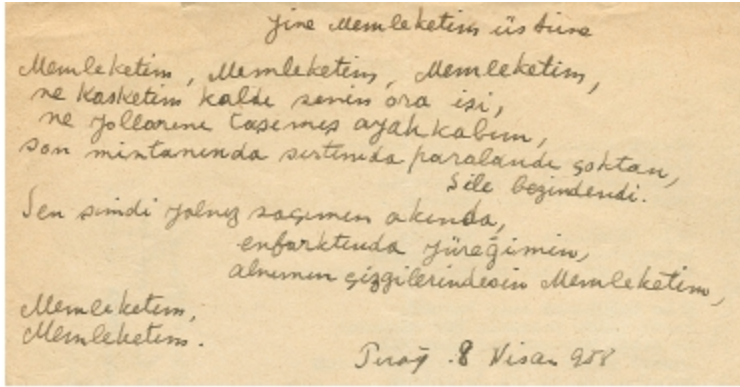 yine Memleketim üstüne
Memleketim, Memleketim, Memleketim,
ne kasketim kaldı senin ora işi,
ne yollarını taşımış ayakkabım,
son mintanın da sırtımda paralandı çoktan,
Şile bezindendi.
Sen şimdi yalnız saçımın akında,
enfarktında yüreğimin,
alnımın çizgilerindesin Memleketim,
Memleketim,
Memleketim.
Prağ . 8 Nisan 958